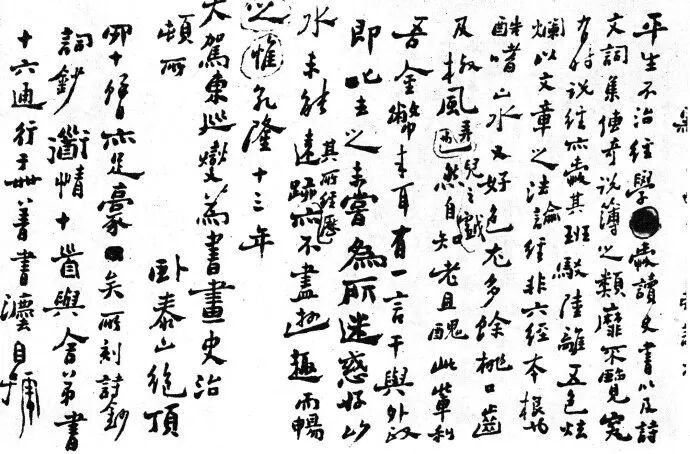 平生不治經學愛讀史書以及詩
文詞集傳奇说簿之類靡不覽究
有时说經亦愛其班駁陸離五色炫
爛以文章之法論經非六經本根也
酷嗜山水又好色尤多餘桃口齒
及椒風弄兒之戲然自知老且醜此輩利
吾金幣来耳有一言干與外政
即叱去之未嘗為所迷惑好山
水未能遠跡其所經歷亦不盡遊趣而暢
之惟乾隆十三年
大駕東巡燮為書畫史治
頓所 卧泰山絕頂
四十餘日亦足豪矣所刻詩鈔
詞鈔道情十首與舍弟書
十六通行于世善書灋自號